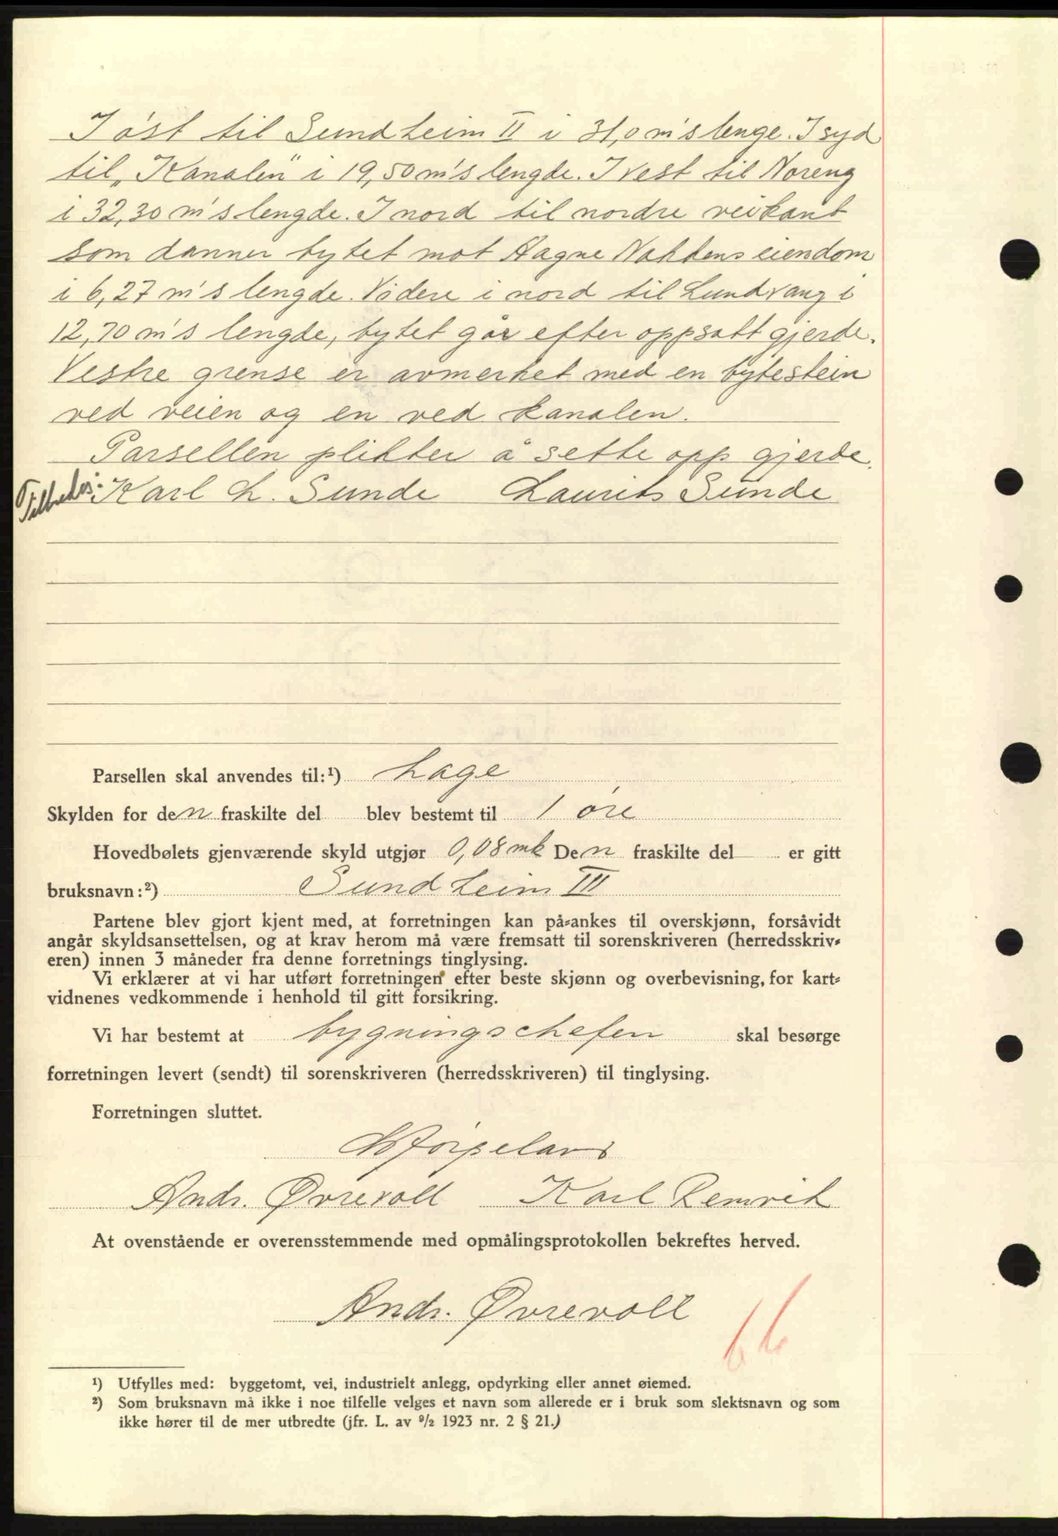 I øst til Sundheim II i 31,0 m's lenge. I syd
til „Kanalen" i 19,50 m's lengde. I vest til Noreng
i 32,30 m's lengde. I nord til nordre veikant
som danner bytet mot Aagne Nakkens eiendom
i 6,27 m's lengde. Videre i nord til Lundvang i
12,70 m's lengde, bytet går efter oppsatt gjerde.
Vestre grense er avmerket med en bytestein
ved veien og en ved kanalen.
Parsellen plikter å sette opp gjerde.
Karl L. Sunde Laurits Sunde
Parsellen skal anvendes til:¹) Lage
Skylden for den fraskilte del blev bestemt til 1 øre
Hovedbølets gjenværende skyld utgjør 0,08 mk Den fraskilte del er gitt
bruksnavn:²) Sundheim III
Partene blev gjort kjent med, at forretningen kan på=ankes til overskjønn, forsåvidt
angår skyldsansettelsen, og at krav herom må være fremsatt til sorenskriveren (herredsskriv=
eren) innen 3 måneder fra denne forretnings tinglysing.
Vi erklærer at vi har utført forretningen efter beste skjønn og overbevisning, for kart=
vidnenes vedkommende i henhold til gitt forsikring.
Vi har bestemt at bygningschefen skal besørge
forretningen levert (sendt) til sorenskriveren (herredsskriveren) til tinglysing.
Forretningen sluttet.
Andr. Øvrevoll Karl Remvik
At ovenstående er overensstemmende med opmålingsprotokollen bekreftes herved.
Andr. Øvrevoll
66
¹) Utfylles med: byggetomt, vei, industrielt anlegg, opdyrking eller annet øiemed.
²) Som bruksnavn må ikke i noe tilfelle velges et navn som allerede er i bruk som slektsnavn og som
ikke hører til de mer utbredte (jfr. L. av 9/2 1923 nr. 2 § 21.)